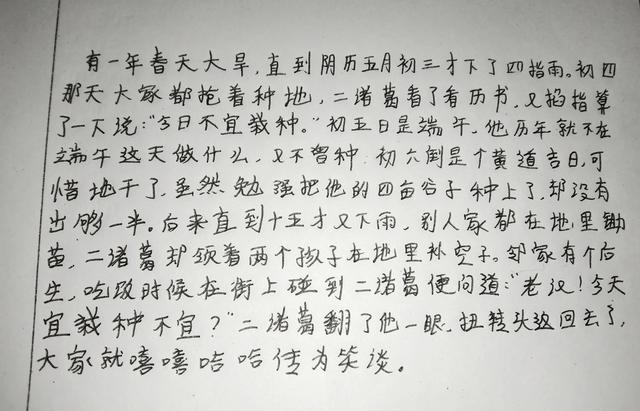 有一年春天大旱,直到阴历五月初三才下了四指雨。初四
那天大家都抢着种地,二诸葛看了看历书,又掐指算
了一下说:“今日不宜栽种。”初五日是端午,他历年就不在
端午这天做什么,又不曾种。初六倒是个黄道吉日,可
惜地干了,虽然勉强把他的四亩谷子种上了,却没有
出够一半。后来直到十五才又下雨,别人家都在地里锄
苗,二诸葛却领着两个孩子在地里补空子。邻家有个后
生,吃饭时候在街上碰到二诸葛便问道:“老汉!今天
宜栽种不宜?”二诸葛翻了他一眼,扭转头返回去了,
大家就嘻嘻哈哈传为笑谈。